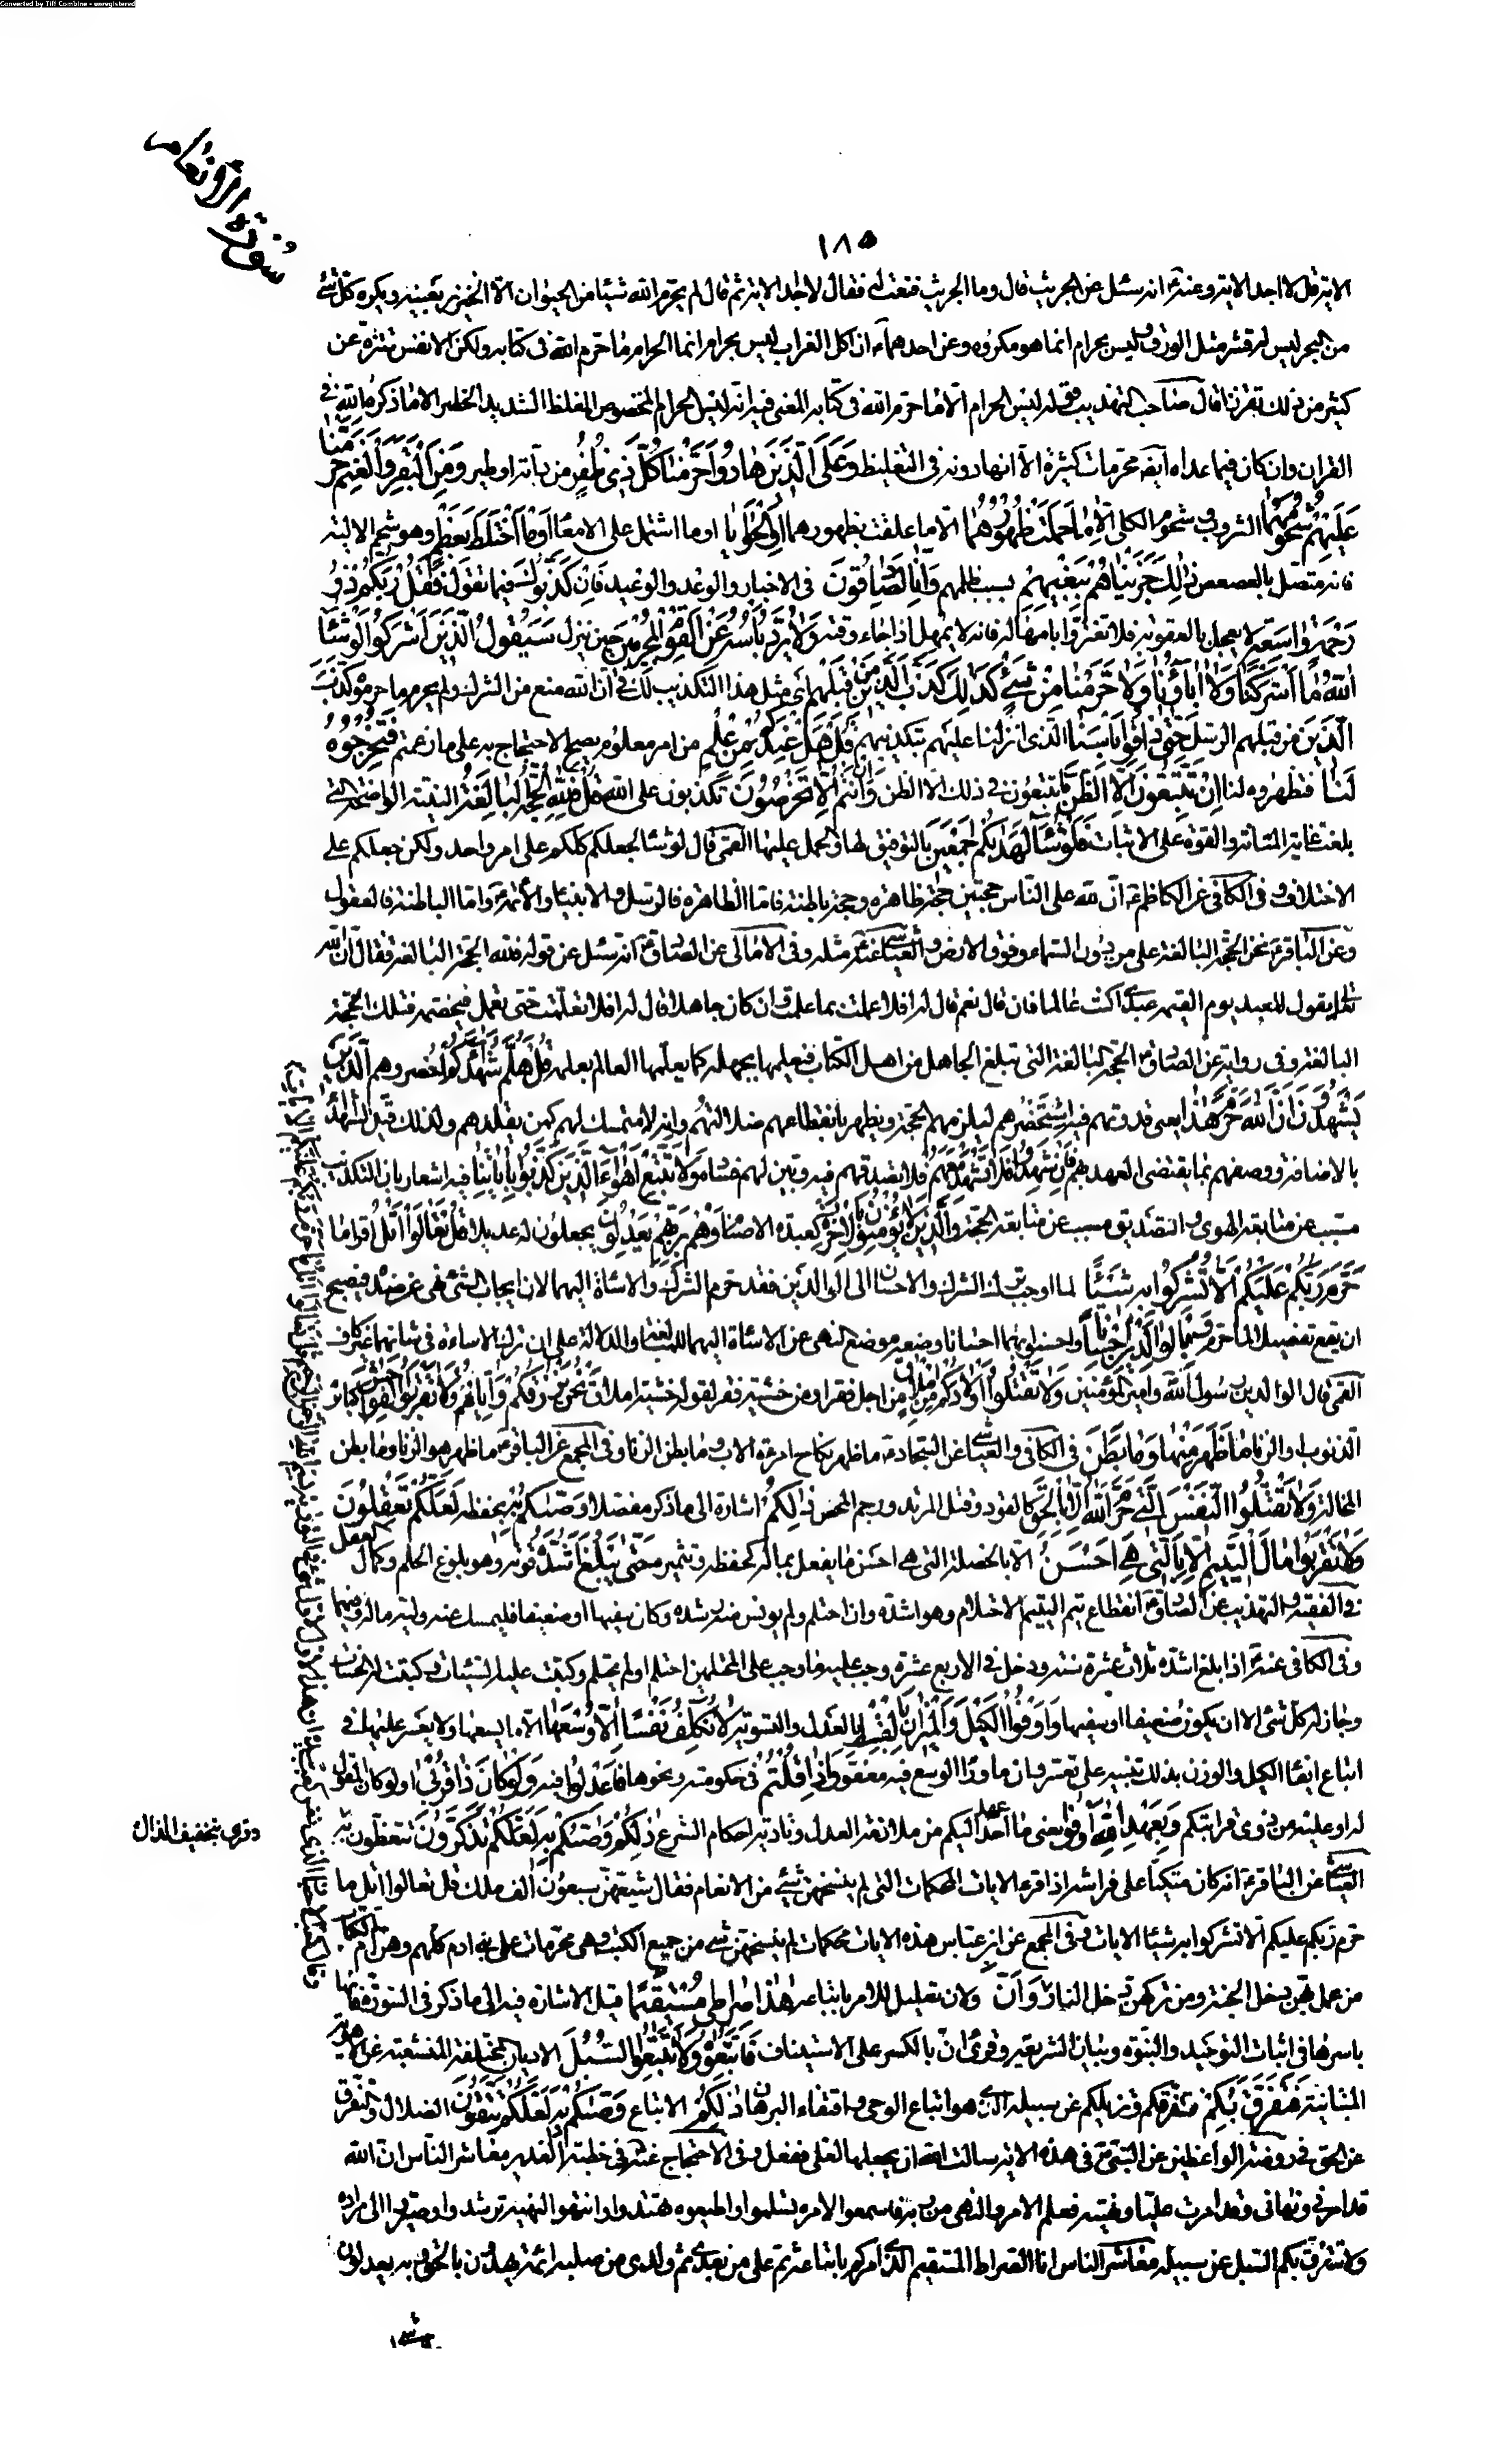 Converted by Tiff Combine - unregistered
سورة الأنعام
١٨٥
الاية قل لا اجد الاية وعنه ع انه سئل عن الجريث قال وما الجريث فنعت له فقال لا اجد الاية ثم قال لم يحرم الله شيئا من الحيوان الا الخنزير بعينه ويكره كل شئ
من البحر ليس له قشر مثل الورق وليس بحرام انما هو مكروه وعن احدهما ع ان اكل الغراب ليس بحرام انما الحرام ما حرم الله في كتابه ولكن الانفس تتنزه عن
كثير من ذلك تقززا قال صاحب التهذيب قوله ليس الحرام الا ما حرم الله في كتابه المعنى فيه انه ليس الحرام المخصوص المغلظ الشديد الخطر الا ما ذكره الله في
القران وان كان فيما عداه ايضا محرمات كثيرة الا انها دونه في التغليظ وَعَلَى الَّذينَ هَادُوا حَرَّمْنَا كُلَّ ذي ظُفُرٍ من دابة او طير وَمِنَ الْبَقَرِ وَالْغَنَمِ حَرَّمْنَا
عَلَيْهِمْ شُحُومَهُمَا الثروب وشحوم الكلى اِلَّا مَا حَمَلَتْ ظُهُورُهُمَا الا ما علقت بظهورهما اَوِ الْحَوَايَا او ما اشتمل على الامعاء اَوْ مَا اخْتَلَطَ بِعَظْمٍ وهو شحم الالية
فانه متصل بالعصعص ذلِكَ جَزَيْنَاهُمْ بِبَغْيِهِمْ بسبب ظلمهم وَاِنَّا لَصَادِقُونَ في الاخبار والوعد والوعيد فَاِنْ كَذَّبُوكَ فيما تقول فَقُلْ رَبُّكُمْ ذُو
رَحْمَةٍ وَاسِعَةٍ لا يعجل بالعقوبة فلا تغتروا بامهاله فانه لا يمهل اذا جاء وقته وَلَا يُرَدُّ بَأْسُهُ عَنِ الْقَوْمِ الْمُجْرِمينَ حين ينزل سَيَقُولُ الَّذينَ اَشْرَكُوا لَوْ شَاءَ
اللهُ مَا اَشْرَكْنَا وَلَا ابَاؤُنَا وَلَا حَرَّمْنَا مِنْ شَيْءٍ كَذلِكَ كَذَّبَ الَّذينَ مِنْ قَبْلِهِمْ اي مثل هذا التكذيب لك في ان الله منع من الشرك ولم يحرم ما حرموه كذب
الَّذينَ من قبلهم الرسل حَتّى ذَاقُوا بَأْسَنَا الذي انزلنا عليهم بتكذيبهم قُلْ هَلْ عِنْدَكُمْ مِنْ عِلْمٍ من امر معلوم يصح الاحتجاج به على ما زعمتم فَتُخْرِجُوهُ
لَنَا فتظهروه لنا اِنْ تَتَّبِعُونَ اِلَّا الظَّنَّ ما تتبعون في ذلك الا الظن وَاِنْ اَنْتُمْ اِلَّا تَخْرُصُونَ تكذبون على الله قُلْ فَلِلّهِ الْحُجَّةُ الْبَالِغَةُ البينة الواضحة التي
بلغت غاية المتانة والقوة على الاثبات فَلَوْ شَاءَ لَهَدَيكُمْ اَجْمَعينَ بالتوفيق لها والحمل عليها القمي قال لو شاء لجعلكم كلكم على امر واحد ولكن جعلكم على
الاختلاف وفي الكافي عن الكاظم ع ان لله على الناس حجتين حجة ظاهرة وحجة باطنة فاما الظاهرة فالرسل والانبياء والائمة ع واما الباطنة فالعقول
وعن الباقر ع نحن الحجة البالغة على من دون السماء وفوق الارض والعياشي عنه ع مثله وفي الامالي عن الصادق ع انه سئل عن قوله فلله الحجة البالغة فقال ان الله
تعالى يقول للعبد يوم القيمة عبدي اكنت عالما فان قال نعم قال له افلا عملت بما علمت وان كان جاهلا قال له افلا تعلمت حتى تعمل فيخصمه فتلك الحجة
البالغة وفي رواية عن الصادق ع الحجة البالغة التي تبلغ الجاهل من اهل الكتاب فيعلمها بجهله كما يعلمها العالم بعلمه قُلْ هَلُمَّ شُهَدَاءَكُمُ احضروهم الَّذينَ
يَشْهَدُونَ اَنَّ اللهَ حَرَّمَ هذَا يعني قدوتهم فيه استحضرهم ليلزمهم الحجة ويظهر بانقطاعهم ضلالتهم وانه لا متمسك لهم كمن يقلدهم ولذلك قيد الشهداء
بالاضافة ووصفهم بما يقتضي العهد بهم فَاِنْ شَهِدُوا فَلَا تَشْهَدْ مَعَهُمْ فلا تصدقهم فيه وبين لهم فساده وَلَا تَتَّبِعْ اَهْوَاءَ الَّذينَ كَذَّبُوا بِايَاتِنَا فيه اشعار بان التكذيب
مسبب عن متابعة الهوى والتصديق مسبب عن متابعة الحجة وَالَّذينَ لَا يُؤْمِنُونَ بِالْاخِرَةِ كعبدة الاصنام وَهُمْ بِرَبِّهِمْ يَعْدِلُونَ يجعلون له عديلا قُلْ تَعَالَوْا اَتْلُ اقرا مَا
حَرَّمَ رَبُّكُمْ عَلَيْكُمْ اَلَّا تُشْرِكُوا بِهِ شَيْئًا لما اوجب ترك الشرك والاحسان الى الوالدين فقد حرم الشرك والاساءة اليهما لان ايجاب الشئ نهى عن ضده فيصح
ان يقع تفصيلا لما حرم وَبِالْوَالِدَيْنِ اِحْسَانًا واحسنوا بهما احسانا وضعه موضع النهي عن الاساءة اليهما للمبالغة والدلالة على ان ترك الاساءة في شانهما غير كاف
القمي قال الوالدين رسول الله وامير المؤمنين وَلَا تَقْتُلُوا اَوْلَادَكُمْ مِنْ اِمْلَاقٍ من اجل فقر او من خشية فقر لقوله خشية املاق نَحْنُ نَرْزُقُكُمْ وَاِيَّاهُمْ وَلَا تَقْرَبُوا الْفَوَاحِشَ كبائر
الذنوب او الزنا مَا ظَهَرَ مِنْهَا وَمَا بَطَنَ في الكافي والعياشي عن السجاد ع ما ظهر نكاح امرءة الاب وما بطن الزنا وفي المجمع عن الباقر ع ما ظهر هو الزنا وما بطن
المخالة وَلَا تَقْتُلُوا النَّفْسَ الَّتي حَرَّمَ اللهُ اِلَّا بِالْحَقِّ كالقود وقتل المرتد ورجم المحصن ذلِكُمْ اشارة الى ما ذكر مفصلا وَصّيكُمْ بِهِ بحفظه لَعَلَّكُمْ تَعْقِلُونَ
وَلَا تَقْرَبُوا مَالَ الْيَتيمِ اِلَّا بِالَّتي هِيَ اَحْسَنُ الا بالخصلة التي هي احسن ما يفعل بماله كحفظه وتثميره حَتّى يَبْلُغَ اَشُدَّهُ قوته وهو بلوغ الحلم وكمال العقل
في الفقيه والتهذيب عن الصادق ع انقطاع يتم اليتيم الاحتلام وهو اشده وان احتلم ولم يونس منه رشده وكان سفيها او ضعيفا فليمسك عنه وليه ماله وفيهما
وفي الكافي عنه ع اذا بلغ اشده ثلاث عشرة سنة ودخل في الاربع عشرة وجب عليه ما وجب على المحتلمين احتلم او لم يحتلم وكتبت عليه السيئات وكتبت له الحسنات
وجاز له كل شئ الا ان يكون ضعيفا او سفيها وَاَوْفُوا الْكَيْلَ وَالْميزَانَ بِالْقِسْطِ بالعدل والتسوية لَا نُكَلِّفُ نَفْسًا اِلَّا وُسْعَهَا الا ما يسعها ولا يعسر عليها في
اتباع ايفاء الكيل والوزن بذلك تنبيه على تعسره وان ما وراء الوسع فيه معفو وَاِذَا قُلْتُمْ في حكومة ونحوها فَاعْدِلُوا فيه وَلَوْ كَانَ ذَا قُرْبى ولو كان المقول
له او عليه من ذوي قرابتكم وَبِعَهْدِ اللهِ اَوْفُوا يعني ما عهد اليكم من ملازمة العدل وتادية احكام الشرع ذلِكُمْ وَصّيكُمْ بِهِ لَعَلَّكُمْ تَذَكَّرُونَ تتعظون به
وقرئ بتخفيف الذال
العياشي عن الباقر ع انه كان متكيا على فراشه اذ قرء الايات المحكمات التي لم ينسخهن شئ من الانعام فقال شيعهن سبعون الف ملك قل تعالوا اتل ما
حرم ربكم عليكم الا تشركوا به شيئا الايات وفي المجمع عن ابن عباس هذه الايات محكمات لم ينسخهن شئ من جميع الكتب وهي محرمات على بني ادم كلهم وهن ام الكتاب
من عمل بهن دخل الجنة ومن تركهن دخل النار وَاَنَّ ولان تعليل للامر باتباعه هذَا صِرَاطي مُسْتَقيمًا قيل الاشارة فيه الى ما ذكر في السورة فانها
باسرها في اثبات التوحيد والنبوة وبيان الشريعة وقرئ ان بالكسر على الاستيناف فَاتَّبِعُوهُ وَلَا تَتَّبِعُوا السُّبُلَ الاديان المختلفة المتشعبة عن الاهوية
المتباينة فَتَفَرَّقَ بِكُمْ فتفرقكم وتزيلكم عَنْ سَبيلِهِ الذي هو اتباع الوحي واقتفاء البرهان ذلِكُمْ الاتباع وَصّيكُمْ بِهِ لَعَلَّكُمْ تَتَّقُونَ الضلال والتفرق
عن الحق في روضة الواعظين عن النبي ص في هذه الاية سالت الله ان يجعلها لعلي ففعل وفي الاحتجاج عنه ص في خطبة الغدير معاشر الناس ان الله
قد امرني ونهاني وقد امرت عليا ونهيته فعلم الامر والنهي من ربه فاسمعوا لامره تسلموا واطيعوه تهتدوا وانتهوا لنهيه ترشدوا وصيروا الى مراده
ولا تتفرق بكم السبل عن سبيله معاشر الناس انا الصراط المستقيم الذي امركم باتباعه ثم علي من بعدي ثم ولدي من صلبه ائمة يهدون بالحق وبه يعدلون